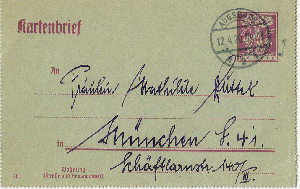 Kartenbrief
AUGSBURG
12.4.
An
Fräulein Mathilde
in München S. 41.
Schäftlarnstr. 140/III
Wohnung
(Straße und Hausnummer)